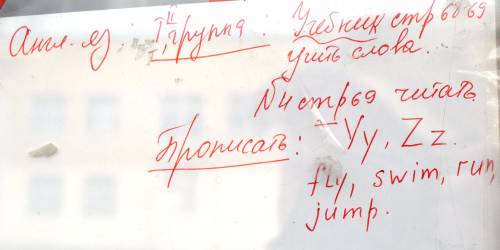 Англ. яз: I, II группа. Учебник стр 68-69
учить слова.
№4 стр 69 читать
Прописать: Yy, Zz
fly, swim, run,
jump.